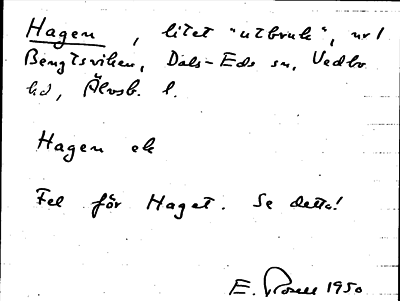 Hagen, litet "utbruk", nr 1
Bengtsviken, Dals-Eds sn, Vedbo
hd, Älvsb. l.
Hagen ek
Fel för Haget. Se detta!
E. Rosell 1950